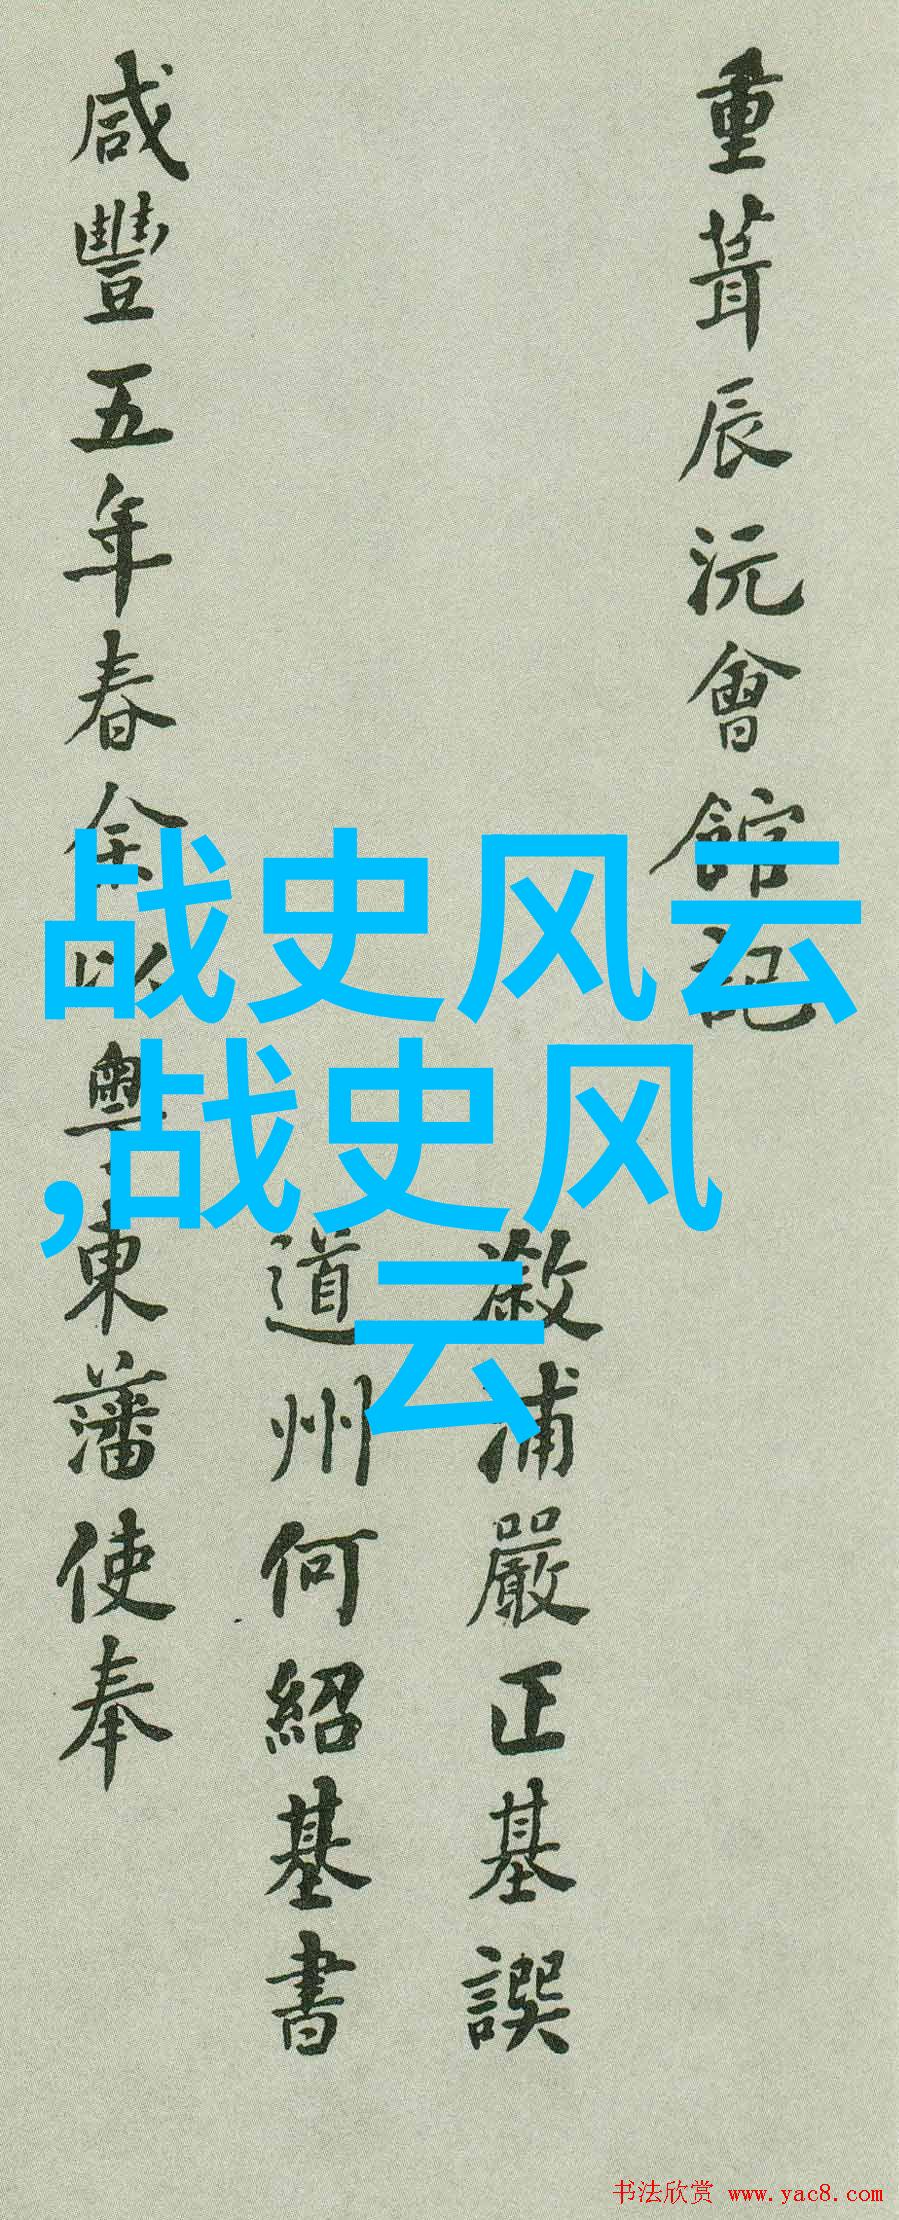 重葺辰沅會館記
溆浦嚴正基譔
道州何紹基書
咸豐五年春余以粤東藩使奉
战史风云
,战史风
云
书法欣赏 www.yac8.com